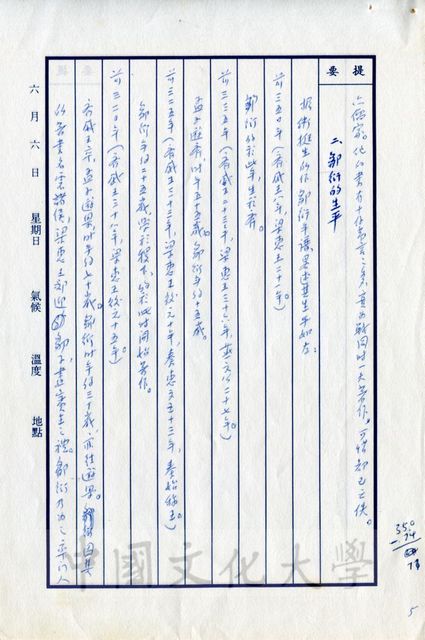 提要
六個家。他的書有十餘萬言之多,實為戰國時一大著作。可惜卻已亡佚。
二、鄒衍的生平
根據衛挺生的作鄒衍年譜,略述其生平如左:
前三五〇年(齊威王八年,梁惠王二十一年)。
鄒衍約於此年,生於齊。
前三三五年(齊威王二十三年,梁惠王三十六年,燕文公二十七年)。
孟子遊齊,時年五十五歲。鄒衍年約十五歲。
前三二五年(齊威王三十三年,梁惠王後元十年,秦惠文王十三年,秦始稱王)。
鄒衍年約二十五歲,學於稷下,約於此時開始著作。
前三二〇年(齊威王三十八年,梁惠王後元十五年)。
齊威王卒,孟子遊梁,時年約七十歲。鄒衍時年約三十歲,亦往遊梁。因其
的著書名震諸侯,梁惠王郊迎鄒子,盡賓主之禮。鄒衍乃為之
六月六日 星期日 氣候 溫度 地點
350
74
5
中國文化大學